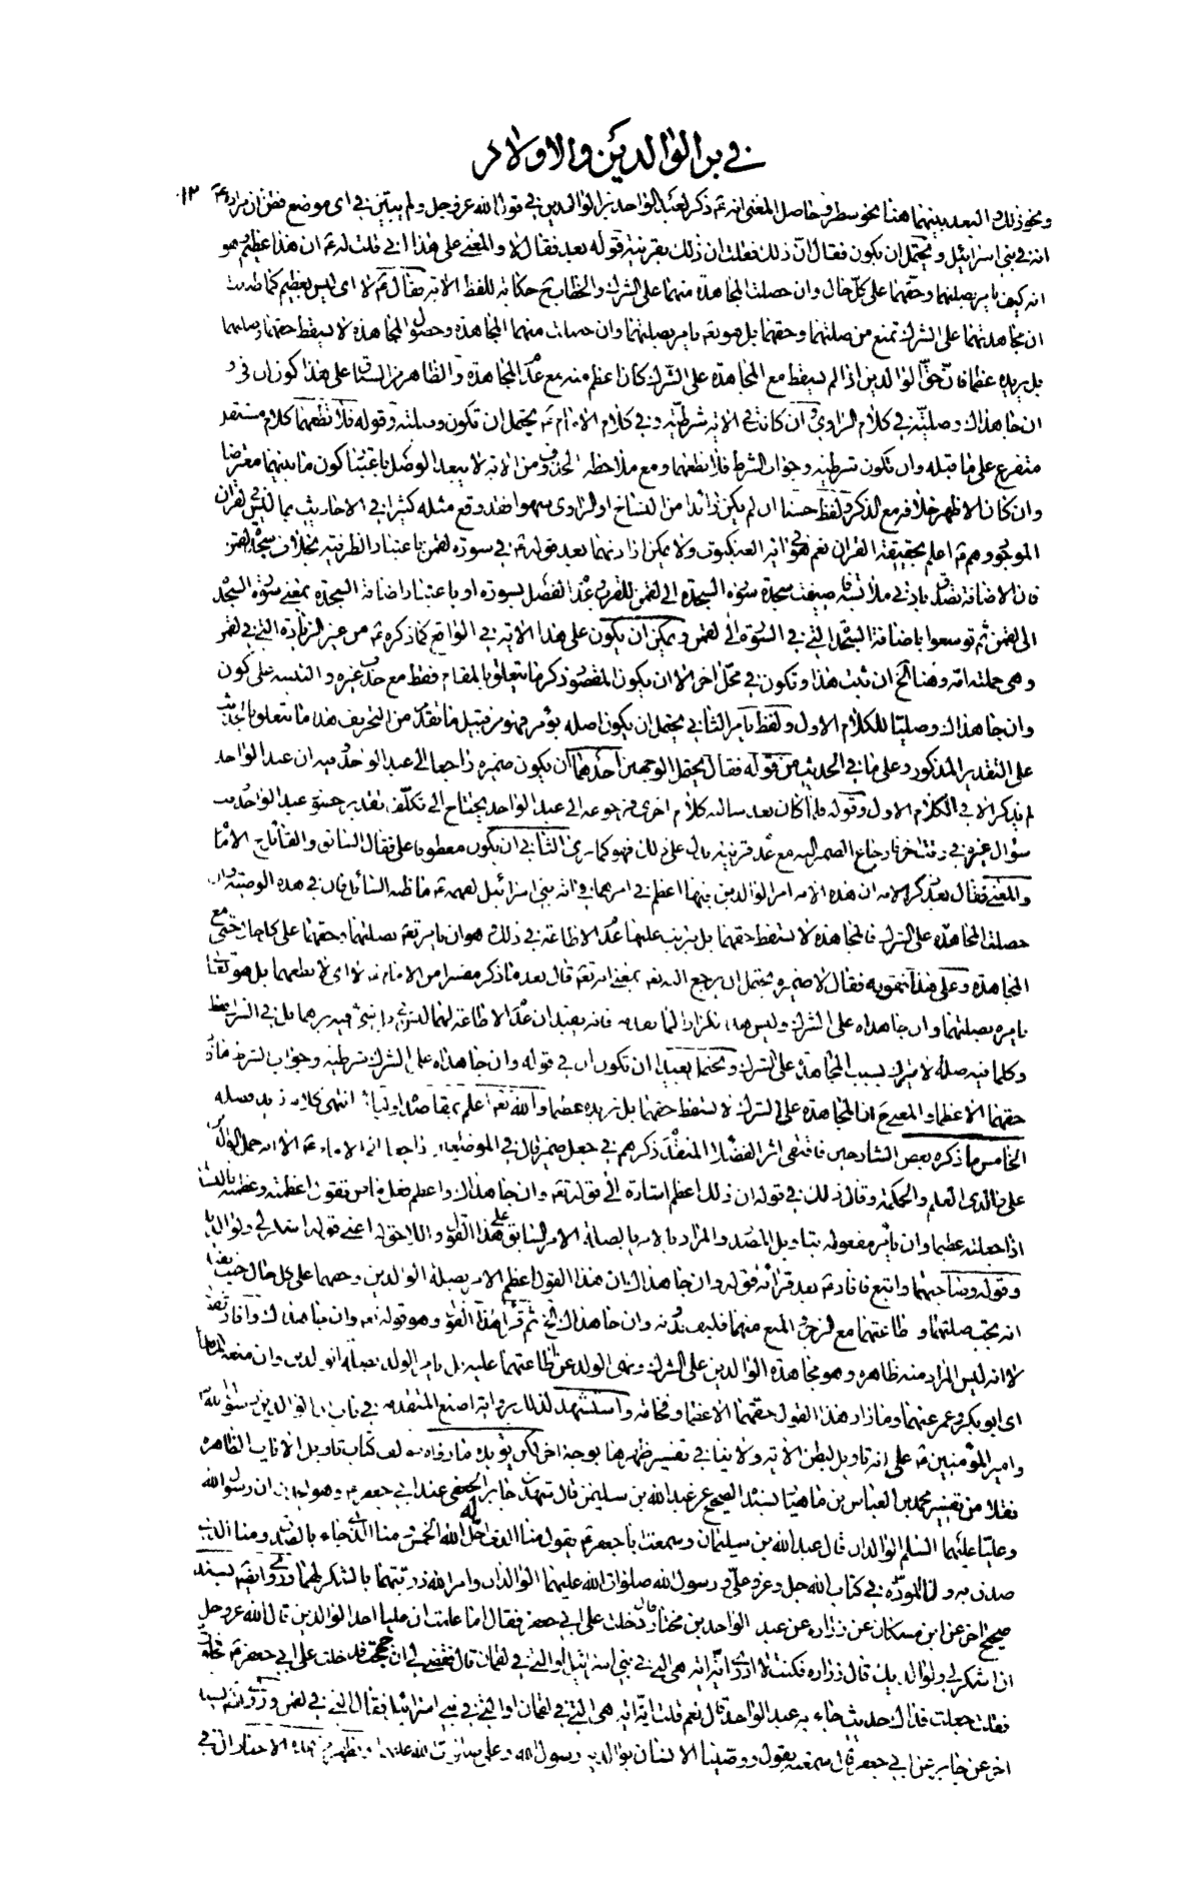 في بر الوالدين والاولاد
١٣
ونحو ذلك والبعد بينهما هنا بنحو سطر وحاصل المعنى انه ع ذكر لعبد الواحد بر الوالدين في قول الله عز وجل ولم يبين في اى موضع فظن ان مراده ع
انه في بنى اسرائيل ويحتمل ان يكون فقال ان ذلك فقلت ان ذلك بقرينة قوله بعد فقال لا والمعنى على هذا انى قلت له ع ان هذا عظيم وهو
انه كيف يامر بصلتهما وحقهما على كل حال وان حصلت المجاهدة منهما على الشرك والخطاب ح حكاية للفظ الاية فقال ع لا اى ليس بعظيم كما ظننت
ان مجاهدتهما على الشرك تمنع من صلتهما وحقهما بل هو تعه يامر بصلتهما وان حصلت منهما المجاهدة وحصول المجاهدة لا يسقط حقهما وصلتهما
بل يزيده عظما فان حق الوالدين اذا لم يسقط مع المجاهدة على الشرك كان اعظم منه مع عدم المجاهدة والظاهر من السياق على هذا كون ان في و
ان جاهداك وصلية في كلام الراوى وان كانت في الاية شرطية وفي كلام الامام ع يحتمل ان تكون وصلية وقوله فلا تطعهما كلام مستقل
متفرع على ما قبله وان تكون شرطية وجواب الشرط فلا تطعهما ومع ملاحظة الحذف من الاية لا يبعد الوصل باعتبار كون ما بينهما معترضا
وان كان الاظهر خلافه مع الذكر ولفظ حسنا ان لم يكن زائدا من النساخ او الراوى سهوا فقد وقع مثله كثيرا في الاحاديث بما ليس في القران
الموجود وهم ع اعلم بحقيقة القران نعم هو في اية العنكبوت ولا يمكن ارادتهما بعد قوله ع في سورة لقمن باعتبار الظرفية بخلاف سجدة لقمن
فان الاضافة تصدق بادنى ملابسة فاضيفت سجدة سورة السجدة الى لقمن للقرب وعدم الفصل بسورة او باعتبار اضافة السجدة بمعنى سورة السجدة
الى لقمن ثم توسعوا باضافة السجدة التي في السورة الى لقمن ويمكن ان يكون على هذا الاية في الواقع كما ذكره ع من غير الزيادة التي في لقمن
وهي حملته امه وهنا الخ ان ثبت هذا وتكون في محل اخر الا ان يكون المقصود ذكر ما يتعلق بالمقام فقط مع حذف غيره والتنبيه على كون
وان جاهداك وصليا للكلام الاول ولفظ يامر الثاني يحتمل ان يكون اصله يؤمر فهو من قبيل ما تقدم من التحريف هذا ما يتعلق بالحديث
على التقدير المذكور وعلى ما في الحديث من قوله فقال يحتمل الوجهين احدهما ان يكون ضميره راجعا الى عبد الواحد وفيه ان عبد الواحد
لم يذكر الا في الكلام الاول وقوله فلما كان بعد سالته كلام اخر فرجوعه الى عبد الواحد يحتاج الى تكلف تقدير حضور عبد الواحد وقت
سؤال غيره في وقت اخر فارجاع الضمير اليه مع عدم قرينة يدل على ذلك فهو كما ترى الثاني ان يكون معطوفا على فقال السابق والقائل الامام
والمعنى فقال بعد ذكر الاية ان هذه الاية امر الوالدين فيها اعظم من امرهما في اية بنى اسرائيل لفهمه ع ما ظنه السائل فان في هذه الوصية وان
حصلت المجاهدة على الشرك فالمجاهدة لا تسقط حقهما بل يترتب عليها عدم الاطاعة في ذلك هو ان يامر تعه بصلتهما وحقهما على كل حال حتى مع
المجاهدة وعلى هذا
يامره بصلتهما وان جاهداه على الشرك وليس هذا تكرارا لما
حقهما الا عظما والمعنى ح ان المجاهدة على الشرك لا تسقط حقهما بل تزيده عظما والله تعه اعلم بمقاصد اوليائه انتهى كلامه
الخامس ما ذكره بعض الشارحين فاقتفى اثر الفضلاء المتقدم ذكرهم في جعل ضمير قال في الموضعين راجعا الى الامام ع الا انه حمل الوالدين
على والدى العلم والحكمة وقال ذلك في قوله ان ذلك اعظم اشارة الى قوله تعه وان جاهداك واعظم فعل ماض تقول اعظمته وعظمته بالتشديد
اذا جعلته عظيما وان يامر مفعوله بتاويل المصدر والمراد بالامر بالصلة الامر السابق على هذا القول واللاحق له اعنى قوله اشكر لى ولوالديك
وقوله وصاحبهما واتبع فافاد ع بعد قرائة قوله وان جاهداك ان هذا القول اعظم الامر بصلة الوالدين وحقهما على كل حال حيث
انه يجب صلتهما وطاعتهما مع الزجر والمنع منهما فكيف بدونه وان جاهداك الخ ثم قرأ هذا القول وهو قوله تعه وان جاهداك وافاد بقوله
لا انه ليس المراد منه ظاهره وهو مجاهدة الوالدين على الشرك ونهى الولد عن اطاعتهما عليه بل يامر الولد بصلة الوالدين وان منعه المانعان
اى ابو بكر وعمر عنهما وما زاد هذا القول حقهما الا عظما وفخامة واستشهد لذلك برواية اصبغ المتقدمة في باب ان الوالدين رسول الله
وامير المؤمنين ع على انه تاويل لبطن الاية ولا ينافى تفسير ظهرها بوجه اخر لكن يؤيده ما رواه مؤلف كتاب تاويل الايات الظاهرة
نقلا من تفسير محمد بن العباس بن ماهيار بسنده الصحيح عن عبد الله بن سليمن قال شهدت جابر الجعفى عند ابى جعفر ع وهو يحدث ان رسول الله
وعليا عليهما السلم الوالدان قال عبد الله بن سليمان وسمعت ابا جعفر ع يقول منا الذى احل الله له الخمس ومنا الذى جاء بالصدق ومنا الذى
صدق به ولنا المودة في كتاب الله جل وعز وعلى ورسول الله صلوات الله عليهما الوالدان وامر الله ذريتهما بالشكر لهما وروى ايضا بسند
صحيح اخر عن ابن مسكان عن زرارة عن عبد الواحد بن مختار قال دخلت على ابى جعفر فقال اما علمت ان عليا احد الوالدين قال الله عز وجل
ان اشكر لى ولوالديك قال زرارة فكنت لا ادرى اية اية هي التي في بنى اسرائيل او التي في لقمان قال فقضى لى ان حججت فدخلت على ابى جعفر ع فخلوت به
فقلت جعلت فداك حديث جاء به عبد الواحد قال نعم قلت اية اية هي التي في لقمان او التي في بنى اسرائيل فقال التي في لقمن وروى ايضا بسند
اخر عن جابر عن ابى جعفر ع قال سمعته يقول ووصينا الانسان بوالديه رسول الله وعلى صلوات الله عليهما ويظهر من هذه الاخبار ان في